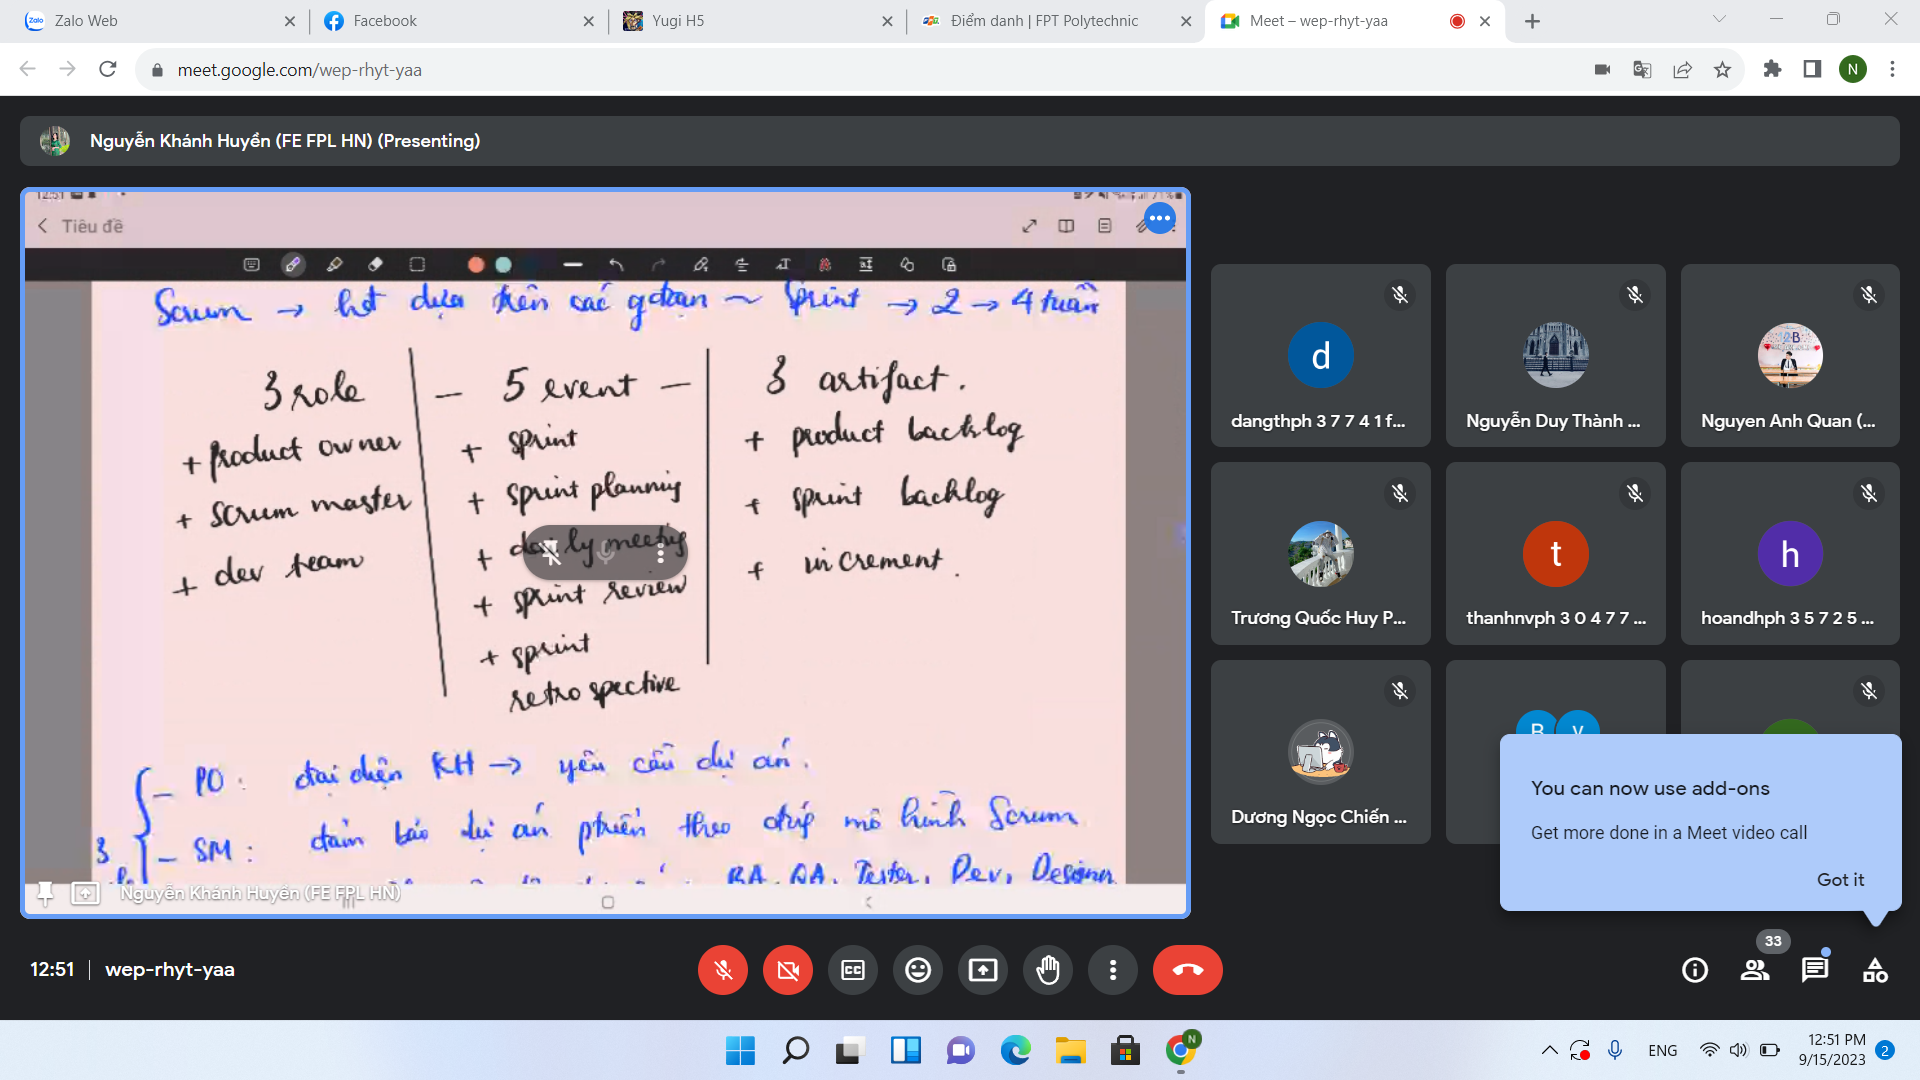 Zalo Web
Facebook
Yugi H5
Điểm danh | FPT Polytechnic
Meet – wep-rhyt-yaa
meet.google.com/wep-rhyt-yaa
N
Nguyễn Khánh Huyền (FE FPL HN) (Presenting)
Tiêu đề
Scrum → hđ dựa trên các gđoạn ~ Sprint → 2 → 4 tuần
3 role
+ product owner
+ scrum master
+ dev team
— 5 event —
+ sprint
+ sprint planning
+ daily meeting
+ sprint review
+ sprint
retrospective
3 artifact.
+ product backlog
+ sprint backlog
+ increment.
3
– PO : đại diện KH → yêu cầu dự án.
– SM : đảm bảo dự án phtriển theo đúng mô hình Scrum
BA, QA, Tester, Dev, Designer
Nguyễn Khánh Huyền (FE FPL HN)
d
dangthph 3 7 7 4 1 f...
Nguyễn Duy Thành ...
Nguyen Anh Quan (...
Trương Quốc Huy P...
t
thanhnvph 3 0 4 7 7 ...
h
hoandhph 3 5 7 2 5 ...
Dương Ngọc Chiến ...
You can now use add-ons
Get more done in a Meet video call
Got it
12:51
wep-rhyt-yaa
33
ENG
12:51 PM
9/15/2023
2